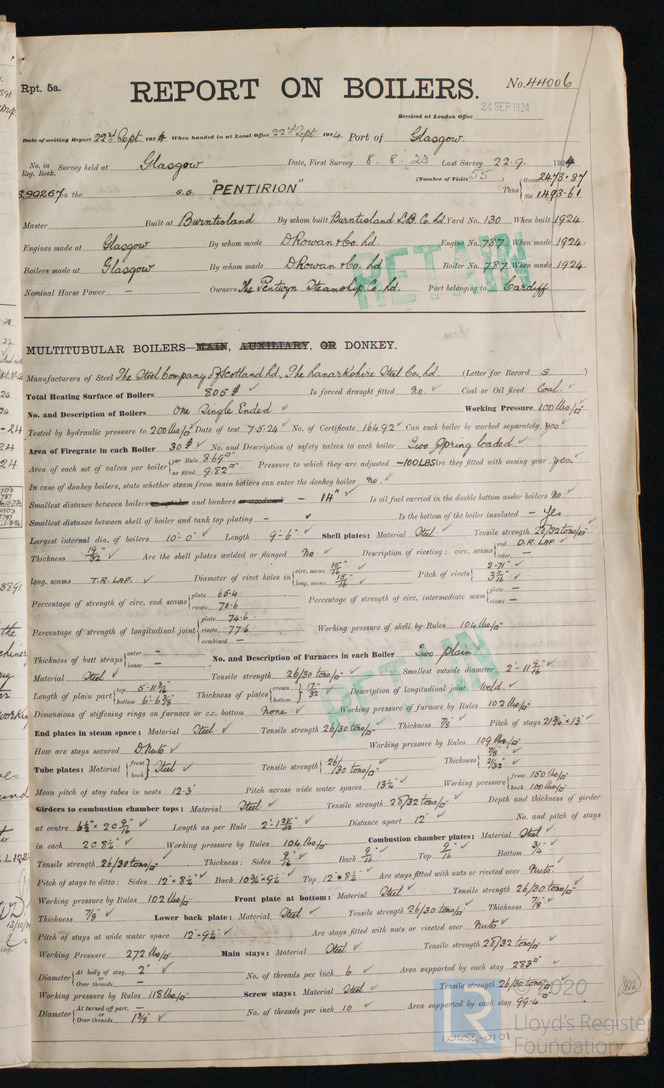 Rpt. 5a.
REPORT ON BOILERS.
No. 44006
Received at London Office 24 SEP 1924
Date of writing Report 22nd Sept. 1924 When handed in at Local Office 22nd Sept. 1924 Port of Glasgow.
No. in Reg. Book. Survey held at Glasgow Date, First Survey 8. 8. 23 Last Survey 22. 9. 1924
(Number of Visits 55 )
on the S.S. "PENTIRION" Tons { Gross 2473.87 Net 1493.61
Master Built at Burntisland By whom built Burntisland S.B. Co. Ld. Yard No. 130 When built 1924
Engines made at Glasgow By whom made D Rowan & Co. Ld. Engine No. 787 When made 1924
Boilers made at Glasgow By whom made D Rowan & Co. Ld Boiler No. 787 When made 1924
Nominal Horse Power - Owners The Pentwyn Steamship Co. Ld. Port belonging to Cardiff
RETAIN
MULTITUBULAR BOILERS—MAIN, AUXILIARY, OR DONKEY.
Manufacturers of Steel The Steel Company of Scotland Ld., The Lanarkshire Steel Co. Ld. (Letter for Record S )
Total Heating Surface of Boilers 805 Is forced draught fitted No. Coal or Oil fired Coal
No. and Description of Boilers One Single Ended Working Pressure 100 lbs/□"
Tested by hydraulic pressure to 200 lbs/□" Date of test 7-5-24 No. of Certificate 16492 Can each boiler be worked separately yes
Area of Firegrate in each Boiler 30 No. and Description of safety valves to each boiler Two Spring loaded
Area of each set of valves per boiler { per Rule 8.69□" as fitted 9.82□" Pressure to which they are adjusted 100LBS Are they fitted with easing gear yes.
In case of donkey boilers, state whether steam from main boilers can enter the donkey boiler no.
Smallest distance between boilers and bunkers - 14" Is oil fuel carried in the double bottom under boilers No
Smallest distance between shell of boiler and tank top plating - Is the bottom of the boiler insulated - Yes
Largest internal dia. of boilers 10'-0" Length 9'-6" Shell plates: Material Steel Tensile strength 28/32 tons/□"
Thickness 19/32" Are the shell plates welded or flanged No Description of riveting: circ. seams { end D.R. LAP. inter. -
long. seams T.R. LAP. Diameter of rivet holes in { circ. seams 15/16" long. seams 15/16" Pitch of rivets { 2.71" 3 11/16"
Percentage of strength of circ. end seams { plate 65.4 rivets 70.6 Percentage of strength of circ. intermediate seam { plate - rivets -
Percentage of strength of longitudinal joint { plate 74.6 rivets 77.6 combined - Working pressure of shell by Rules 104 lbs/□"
Thickness of butt straps { outer - inner - No. and Description of Furnaces in each Boiler Two plain
RETAIN
Material Steel Tensile strength 26/30 tons/□" Smallest outside diameter 2'-11 9/16"
Length of plain part { top bottom Thickness of plates { crown bottom 17/32" Description of longitudinal joint Weld.
Dimensions of stiffening rings on furnace or c.c. bottom None Working pressure of furnace by Rules 102 lbs/□"
End plates in steam space: Material Steel Tensile strength 26/30 tons/□" Thickness 7/8" Pitch of stays 21¾" × 13"
How are stays secured D Nuts Working pressure by Rules 109 lbs/□"
Tube plates: Material { front back } Steel Tensile strength { 26/30 tons/□" Thickness { 7/8" 21/32"
Mean pitch of stay tubes in nests 12.3" Pitch across wide water spaces 13½" Working pressure { front 150 lbs/□" back 100 lbs/□"
Girders to combustion chamber tops: Material Steel Tensile strength 28/32 tons/□" Depth and thickness of girder
at centre 6½" × 2 @ 9/16" Length as per Rule Distance apart 12" No. and pitch of stays
in each 2 @ 8½" Working pressure by Rules 104 lbs/□" Combustion chamber plates: Material Steel
Tensile strength 26/30 tons/□" Thickness: Sides 9/16" Back 9/16" Top 9/16" Bottom 3/4"
Pitch of stays to ditto: Sides 12" × 8½" Back 10¾" × 9¼" Top 12" × 8½" Are stays fitted with nuts or riveted over Nuts
Working pressure by Rules 102 lbs/□" Front plate at bottom: Material Steel Tensile strength 26/30 tons/□"
Thickness 7/8" Lower back plate: Material Steel Tensile strength 26/30 tons/□" Thickness 7/8"
Pitch of stays at wide water space 12" × 9¼" Are stays fitted with nuts or riveted over Nuts
Working Pressure 272 lbs/□" Main stays: Material Steel Tensile strength 28/32 tons/□"
Diameter { At body of stay, 2" or Over threads - No. of threads per inch 6 Area supported by each stay 283□"
Working pressure by Rules 118 lbs/□" Screw stays: Material Steel Tensile strength 26/30 tons/□"
Diameter { At turned off part, - or Over threads 1 5/8" No. of threads per inch 10 Area supported by each stay 99.4□"
© 2020
Lloyd's Register
Foundation